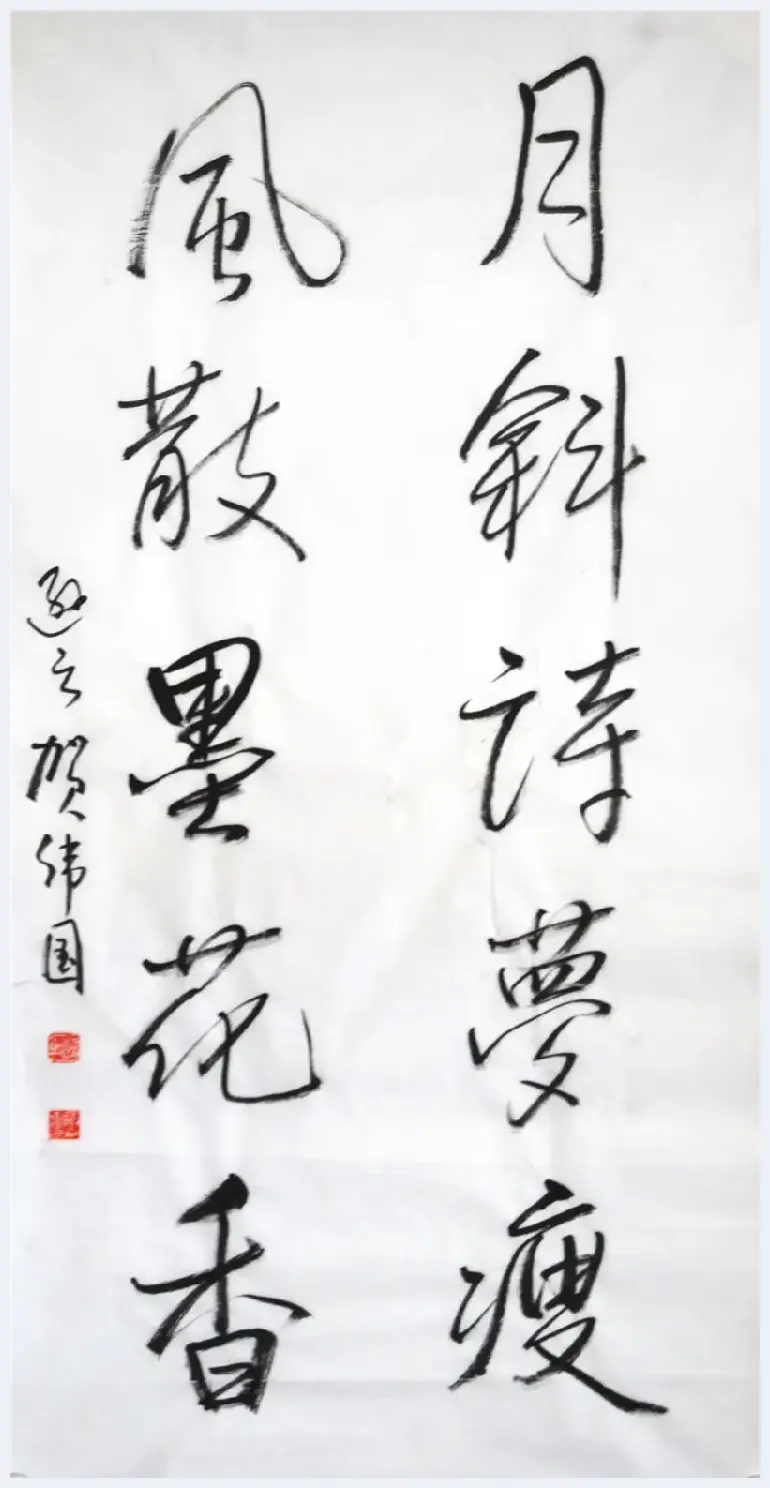 月斜詩夢瘦
風散墨花香
云 贺伟国